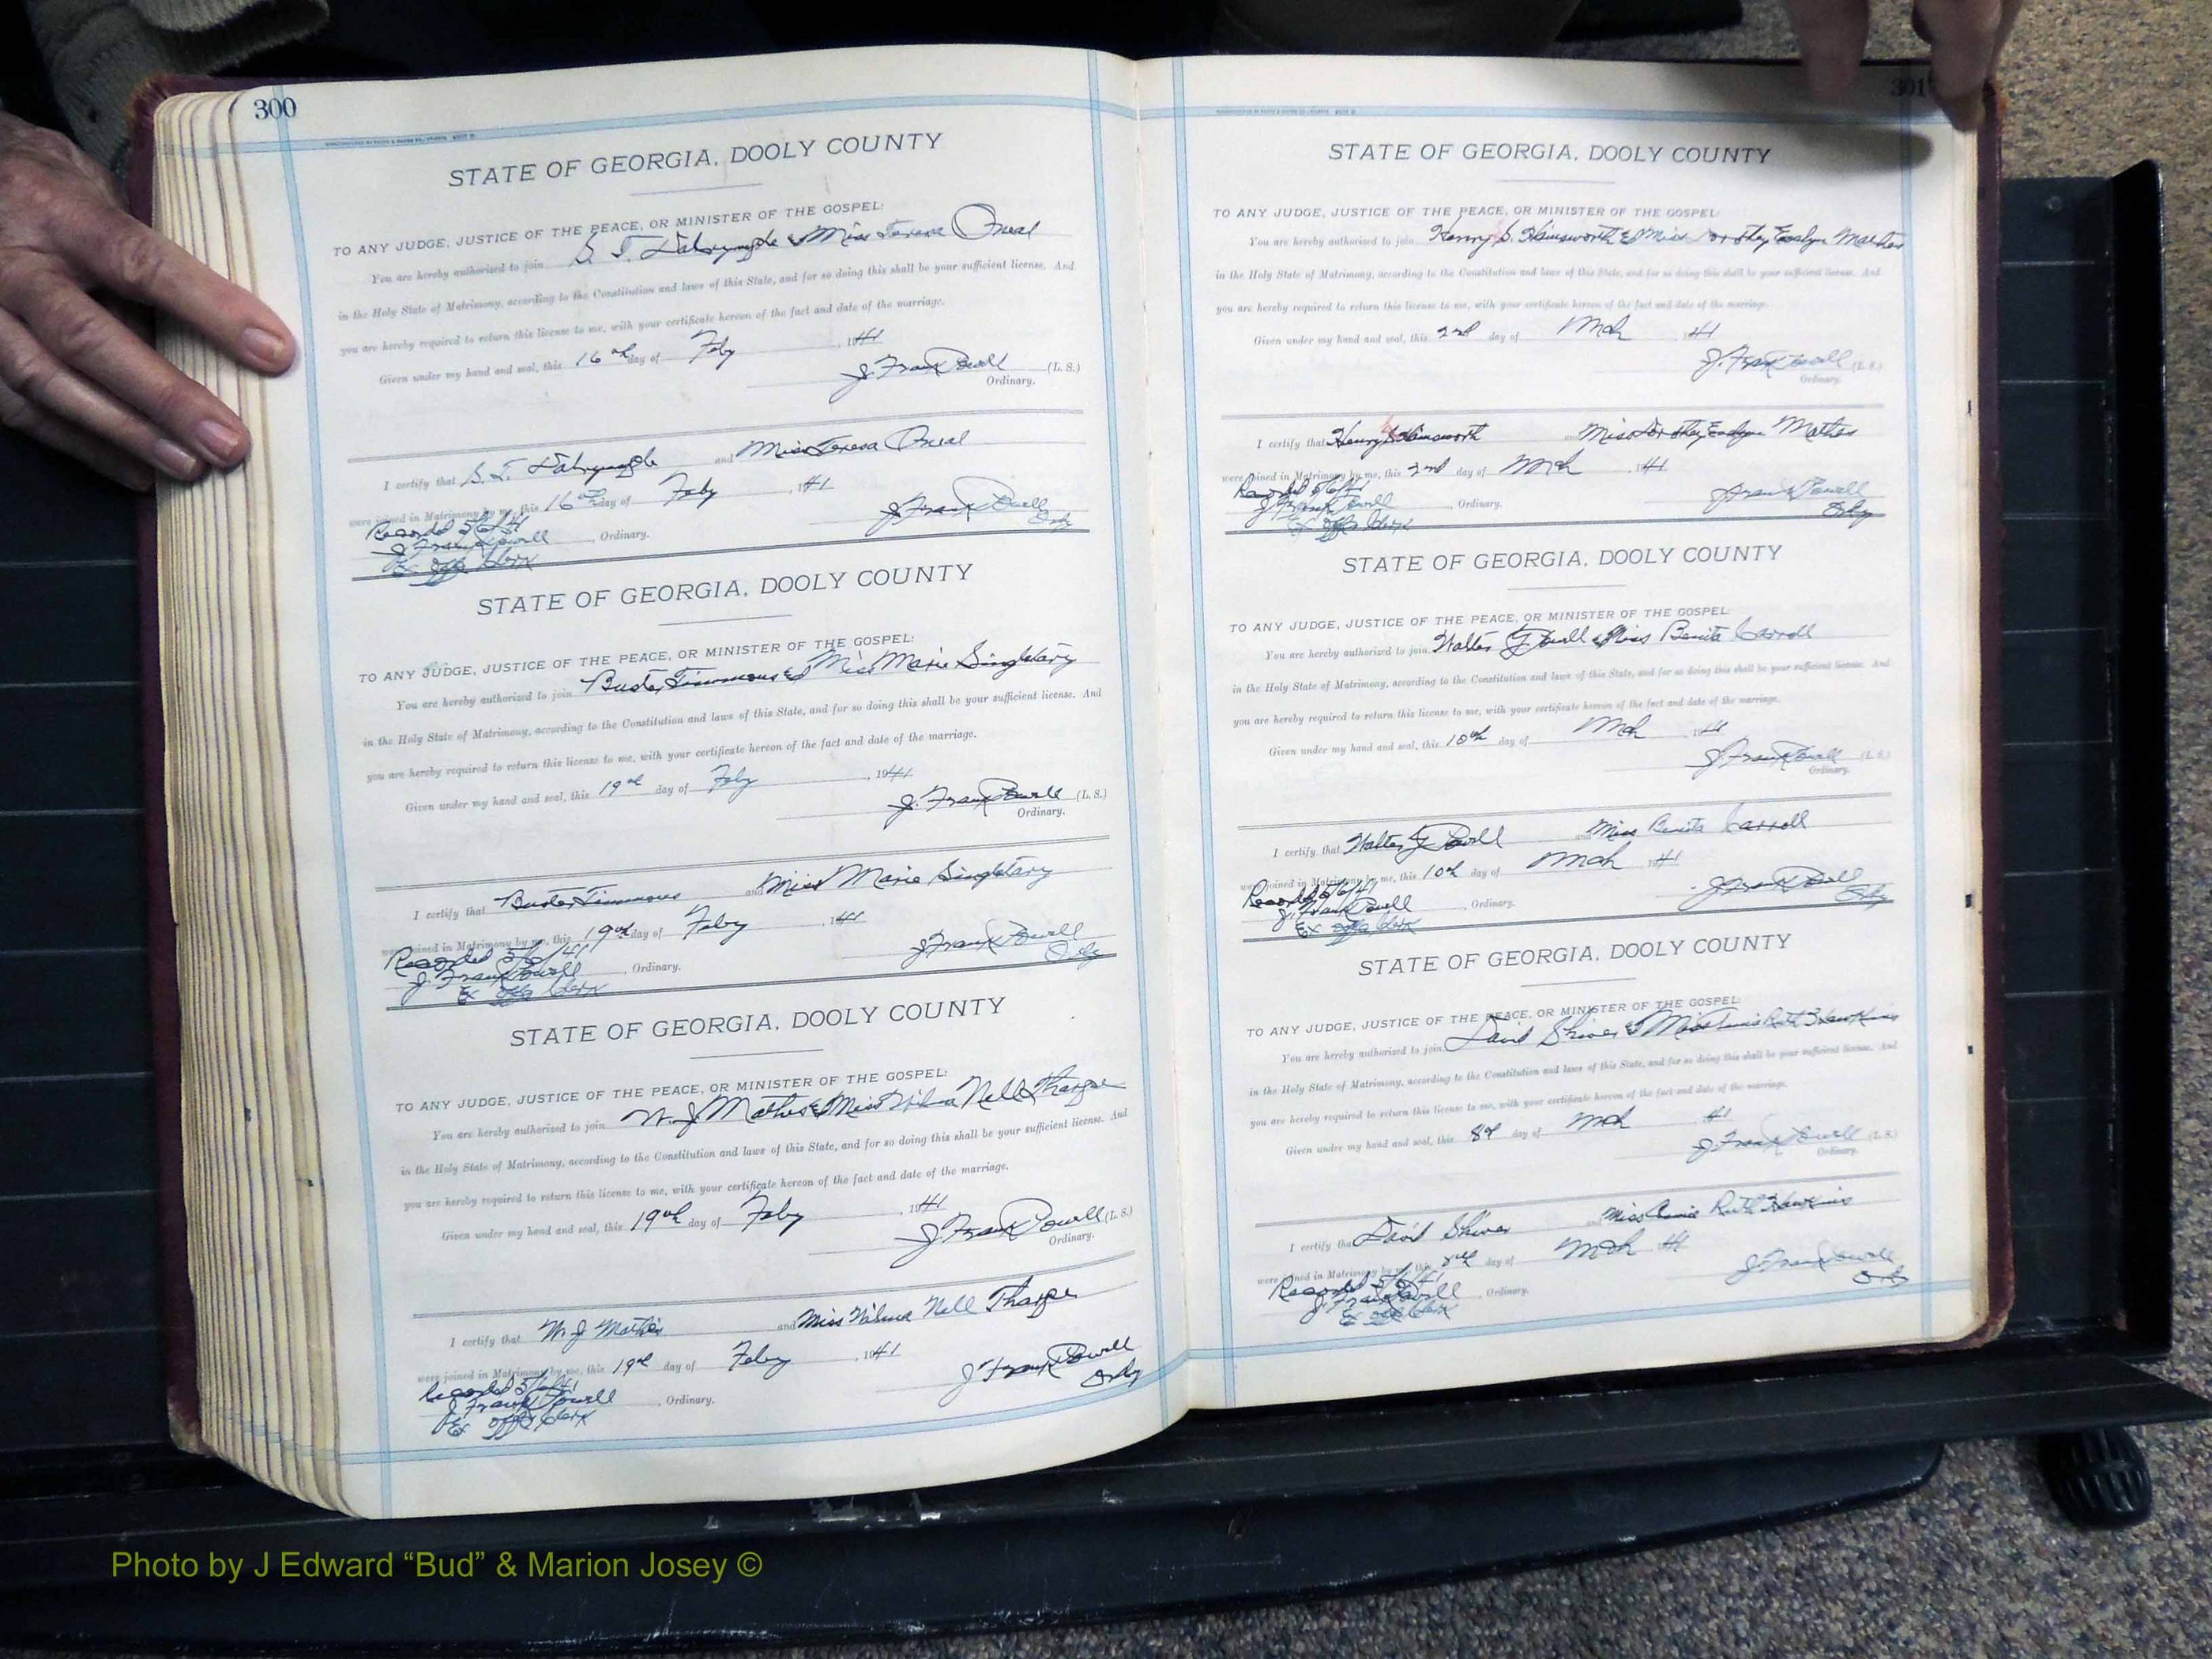 300
STATE OF GEORGIA, DOOLY COUNTY
TO ANY JUDGE, JUSTICE OF THE PEACE, OR MINISTER OF THE GOSPEL:
You are hereby authorized to join S. T. Dalrymple & Miss Teresa Oneal
in the Holy State of Matrimony, according to the Constitution and laws of this State, and for so doing this shall be your sufficient license. And
you are hereby required to return this license to me, with your certificate hereon of the fact and date of the marriage.
Given under my hand and seal, this 16th day of Feby, 1941
J. Frank Powell (L. S.)
Ordinary.
I certify that S. T. Dalrymple and Miss Teresa Oneal
were joined in Matrimony by me, this 16th day of Feby, 1941
J Frank Powell
Recorded 5/6/41
J. Frank Powell, Ordinary. Ordy
Ex offo Clerk
STATE OF GEORGIA, DOOLY COUNTY
TO ANY JUDGE, JUSTICE OF THE PEACE, OR MINISTER OF THE GOSPEL:
You are hereby authorized to join Buster Timmons & Miss Marie Singletary
in the Holy State of Matrimony, according to the Constitution and laws of this State, and for so doing this shall be your sufficient license. And
you are hereby required to return this license to me, with your certificate hereon of the fact and date of the marriage.
Given under my hand and seal, this 19th day of Feby, 1941
J. Frank Powell (L. S.)
Ordinary.
I certify that Buster Timmons and Miss Marie Singletary
were joined in Matrimony by me, this 19th day of Feby, 1941
J Frank Powell
Recorded 5/6/41
J. Frank Powell, Ordinary. Ordy
Ex offo Clerk
STATE OF GEORGIA, DOOLY COUNTY
TO ANY JUDGE, JUSTICE OF THE PEACE, OR MINISTER OF THE GOSPEL:
You are hereby authorized to join W. J Mathis & Miss Wilma Nell Tharpe
in the Holy State of Matrimony, according to the Constitution and laws of this State, and for so doing this shall be your sufficient license. And
you are hereby required to return this license to me, with your certificate hereon of the fact and date of the marriage.
Given under my hand and seal, this 19th day of Feby, 1941
J. Frank Powell (L. S.)
Ordinary.
I certify that W. J Mathis and Miss Wilma Nell Tharpe
were joined in Matrimony by me, this 19th day of Feby, 1941
J Frank Powell
Recorded 5/6/41 Ordy
J Frank Powell, Ordinary.
Ex offo Clerk
301
STATE OF GEORGIA, DOOLY COUNTY
TO ANY JUDGE, JUSTICE OF THE PEACE, OR MINISTER OF THE GOSPEL:
You are hereby authorized to join Henry S. Hainsworth & Miss Dorothy Evelyn Mathis
in the Holy State of Matrimony, according to the Constitution and laws of this State, and for so doing this shall be your sufficient license. And
you are hereby required to return this license to me, with your certificate hereon of the fact and date of the marriage.
Given under my hand and seal, this 2nd day of Mch, 41
J. Frank Powell (L. S.)
Ordinary.
I certify that Henry S Hainsworth and Miss Dorothy Evelyn Mathis
were joined in Matrimony by me, this 2nd day of Mch, 1941
Recorded 5/6/41 J Frank Powell
J Frank Powell, Ordinary. Ordy
Ex offo Clerk
STATE OF GEORGIA, DOOLY COUNTY
TO ANY JUDGE, JUSTICE OF THE PEACE, OR MINISTER OF THE GOSPEL:
You are hereby authorized to join Walter J. Powell & Miss Benita Carroll
in the Holy State of Matrimony, according to the Constitution and laws of this State, and for so doing this shall be your sufficient license. And
you are hereby required to return this license to me, with your certificate hereon of the fact and date of the marriage.
Given under my hand and seal, this 10th day of Mch, 1941
J Frank Powell (L. S.)
Ordinary.
I certify that Walter J Powell and Miss Benita Carroll
were joined in Matrimony by me, this 10th day of Mch, 1941
Recorded 5/6/41 J Frank Powell
J. Frank Powell, Ordinary. Ordy
Ex offo Clerk
STATE OF GEORGIA, DOOLY COUNTY
TO ANY JUDGE, JUSTICE OF THE PEACE, OR MINISTER OF THE GOSPEL:
You are hereby authorized to join David Shiver & Miss Annie Ruth Hawkins
in the Holy State of Matrimony, according to the Constitution and laws of this State, and for so doing this shall be your sufficient license. And
you are hereby required to return this license to me, with your certificate hereon of the fact and date of the marriage.
Given under my hand and seal, this 8th day of Mch, 41
J Frank Powell (L. S.)
Ordinary.
I certify that David Shiver and Miss Annie Ruth Hawkins
were joined in Matrimony by me, this 8th day of Mch 41
Recorded 5/6/41 J Frank Powell
J. Frank Powell, Ordinary. Ordy
Ex offo Clerk
Photo by J Edward “Bud” & Marion Josey ©